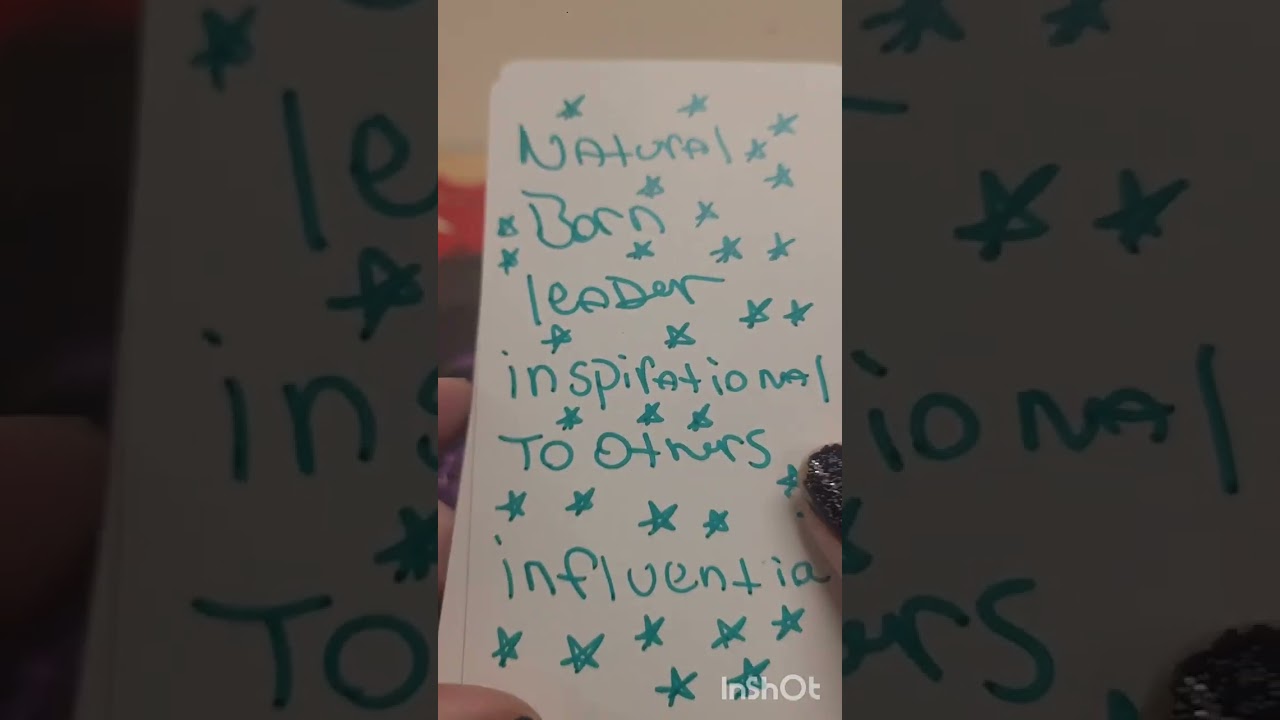 Natural
Born
leader
inspirational
To Others
influentia
InShOt